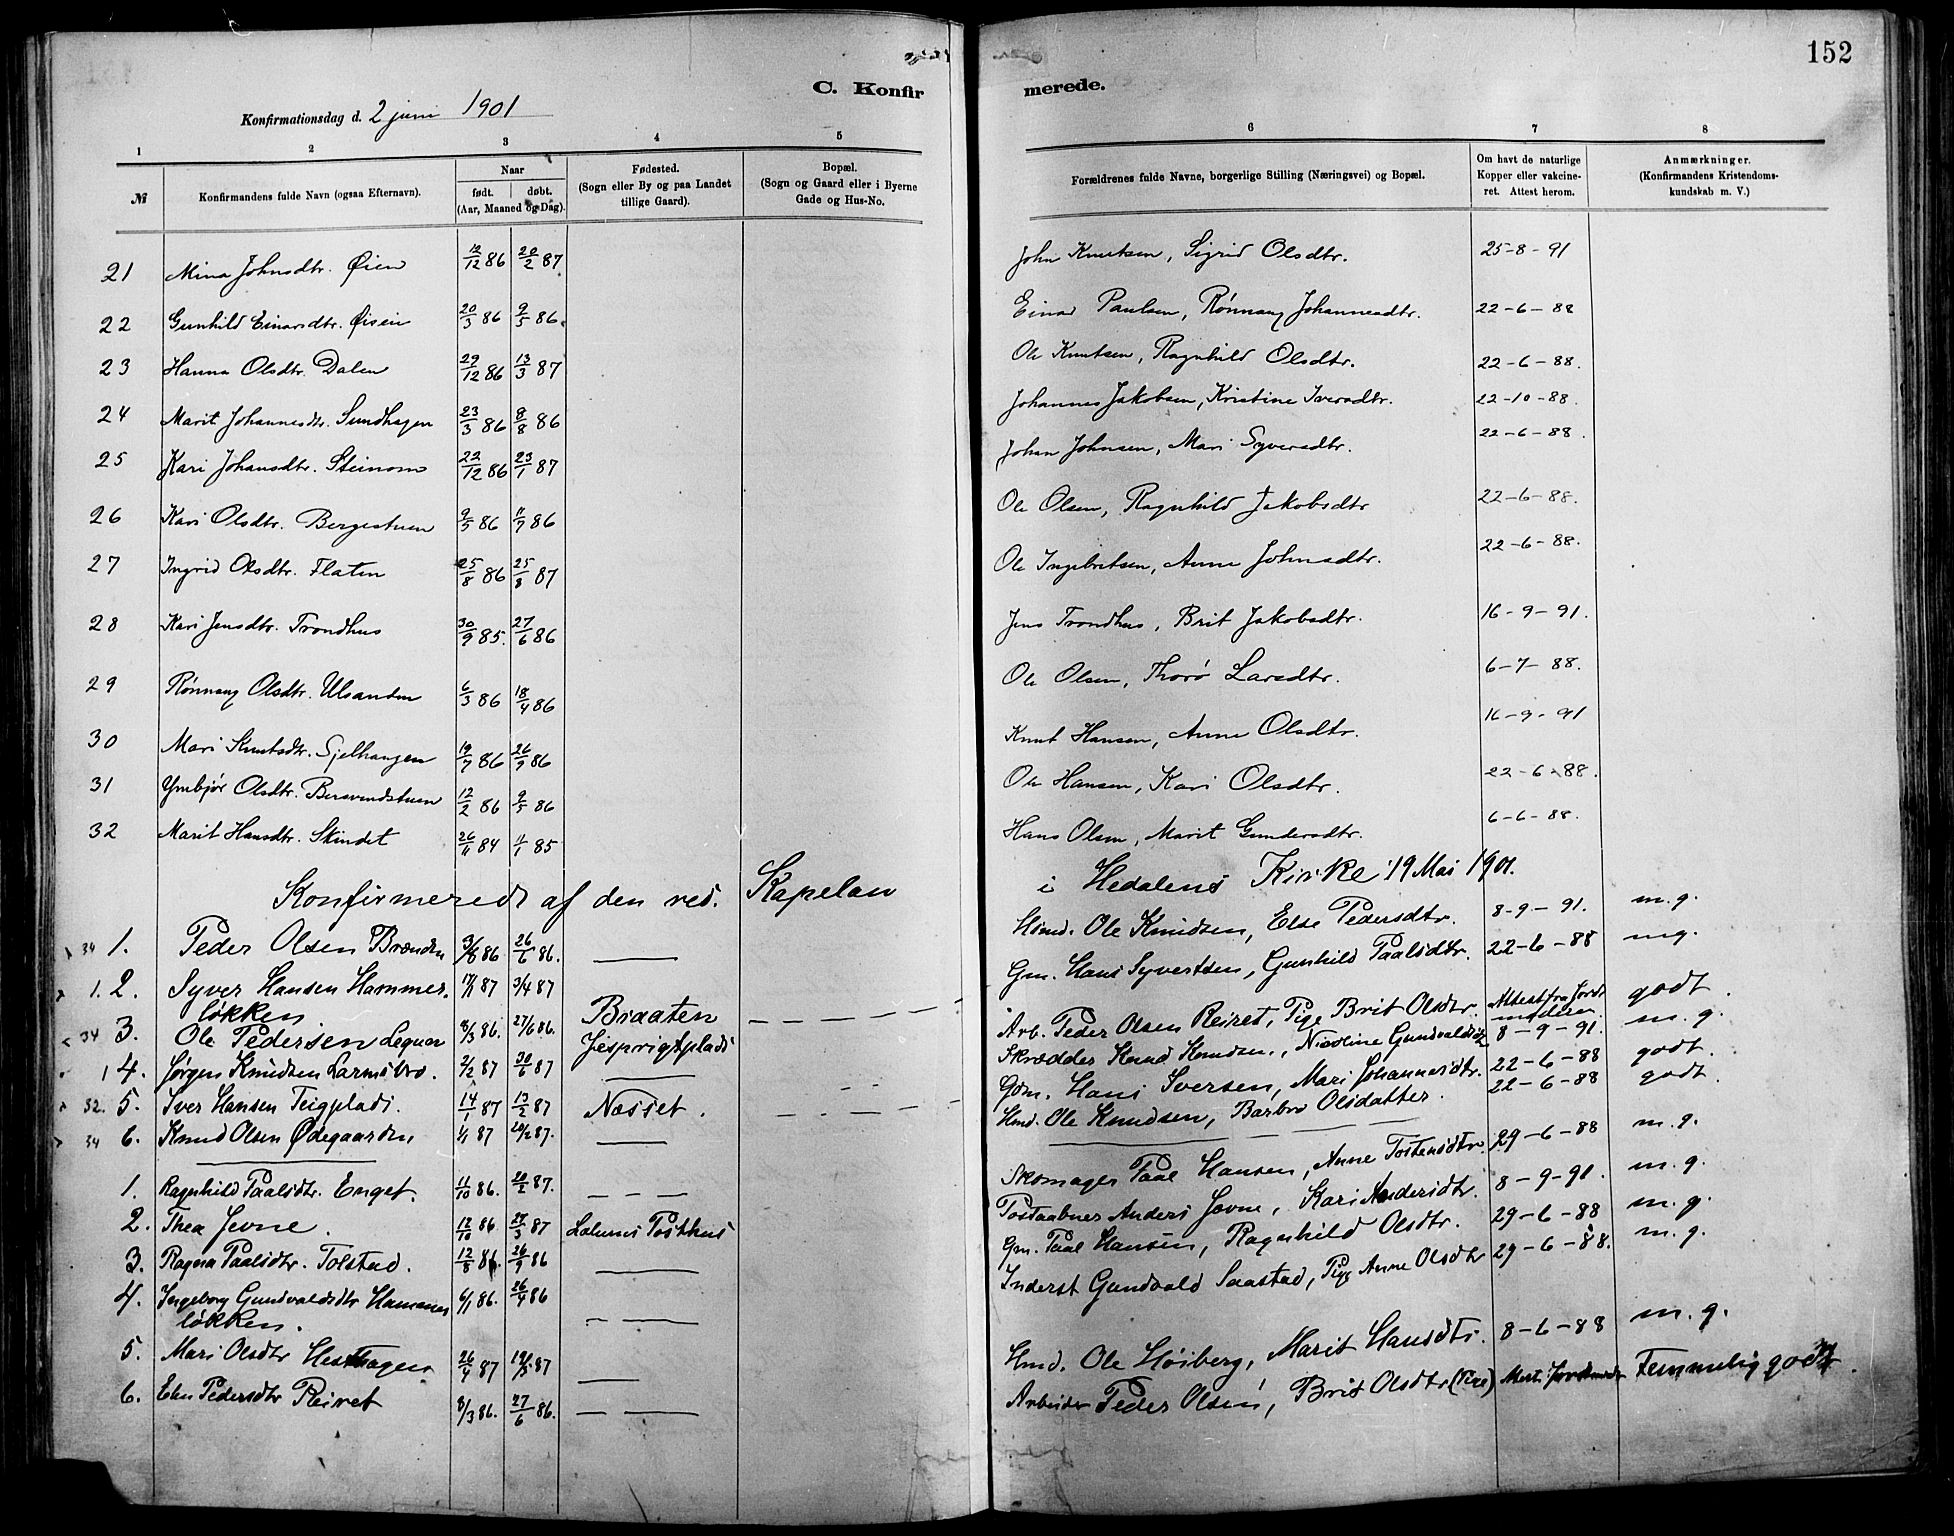 152
C. Konfirmerede.
Konfirmationsdag d. 2 juni 1901
1 2 3 4 5 6 7 8
№ Konfirmandens fulde Navn (ogsaa Efternavn). Naar født. døbt. (Aar, Maaned og Dag). Fødested. (Sogn eller By og paa Landet tillige Gaard). Bopæl. (Sogn og Gaard eller i Byerne Gade og Hus-No. Forældrenes fulde Navne, borgerlige Stilling (Næringsvei) og Bopæl. Om havt de naturlige Kopper eller vakcineret. Attest herom. Anmærkninger. (Konfirmandens Kristendomskundskab m. V.)
21 Mina Johnsdtr. Øien 12/12 86 20/2 87 John Knutsen, Sigrid Olsdtr. 25-8-91
22 Gunhild Einarsdtr. Øisein 20/3 86 9/5 86. Einar Paulsen, Rønnaug Johannesdtr. 22-6-88
23 Hanna Olsdtr. Dalen 29/12 86 13/3 87 Ole Knutsen, Ragnhild Olsdtr. 22-6-88.
24 Marit Johannesdtr. Sundhagen 23/3 86 8/8 86 Johannes Jakobsen, Kristine Iversdtr. 22-10-88.
25 Kari Johansdtr. Steinom 22/12 86 23/1 87 Johan Johnsen, Mari Syversdtr. 22-6-88.
26 Kari Olsdtr. Bergestuen 9/5 86 11/7 86 Ole Olsen, Ragnhild Jakobsdtr 22-6-88.
27 Ingrid Olsdtr. Flaten 25/8 86 25/3 87 Ole Ingebretsen, Anne Johnsdtr. 22-6-88.
28 Kari Jensdtr. Trondhus 30/9 85. 27/6 86 Jens Trondhus, Brit Jakobsdtr. 16-9-91.
29 Rønnaug Olsdtr. Ulsanden 6/3 86 18/4 86 Ole Olsen, Thorø Larsdtr. 6-7-88.
30 Mari Knutsdtr. Gjelhaugen 19/7 86 26/9 86 Knut Hansen, Anne Olsdtr. 16-9-91
31 Ymbjør Olsdtr. Bersvendstuen 12/2 86 9/5 86 Ole Hansen, Kari Olsdtr. 22-6-88.
32 Marit Hansdtr. Skindet 26/11 84 11/1 85 Hans Olsen, Marit Gundersdtr. 6-6-88.
Konfirmerede af den res. Kapelan i Hedalens Kirke 19 Mai 1901.
34 1. Peder Olsen Brænden 3/6 86 26/6 86. Hsmd. Ole Knudsen, Else Pedersdtr. 8-9-91. m.g.
1. 2. Syver Hansen Hammerløkken 17/1 87 3/4 87 Gm. Hans Syvertsen, Gunhild Paalsdtr. 22-6-88 mg.
34 3. Ole Pedersen Leguen 8/3 86. 27/6 86. Braaten Arb. Peder Olsen Reiret, Pige Brit Olsdtr. Attest fra Jordmoderen godt.
1 4. Jørgen Knudsen Larmsbro. 2/2 87 30/6 87 Jesprigtplads Skrædder Knud Knudsen, Nicoline Gundvaldsdtr 8-9-91. m.g.
32. 5. Iver Hansen Teigplads. 14/1 87 13/2 87 Næsset. Gdm. Hans Iversen, Mari Johannesdtr. 22-6-88 godt.
34 6. Knud Olsen Ødegaarden 1/1 87 20/2 87. Hmd. Ole Knudsen, Barbro Olsdatter. 22-6-88 godt.
1. Ragnhild Paalsdtr. Enget. 11/10 86. 20/2 87. Skomager Paal Hansen, Anne Tostensdtr. 29-6-88 m.g.
2. Thea Jevne. 12/10 86 27/3 87 Lalums Posthus Postaabner Anders Jevne, Kari Andersdtr. 8-9-91. m.g.
3. Ragna Paalsdtr. Tolstad. 12/8 86. 26/9 86 Gm. Paal Hansen, Ragnhild Olsdtr. 29-6-88 m.g.
4. Ingeborg Gundvaldsdtr Hammerløkken. 6/1 86. 26/4 86 Inderst Gundvald Saastad, Pige Anne Olsdtr 29-6-88. m.g.
5. Mari Olsdtr Hesthagen 26/4 87 19/3 87 Hmd. Ole Høiberg, Marit Hansdtr. 8-6-88 m.g.
6. Elen Pedersdtr Reiret 8/3 86. 27/6 86. Arbeider Peder Olsen, Brit Olsdtr (Pige) Attest. Jordmoder Temmelig godt.